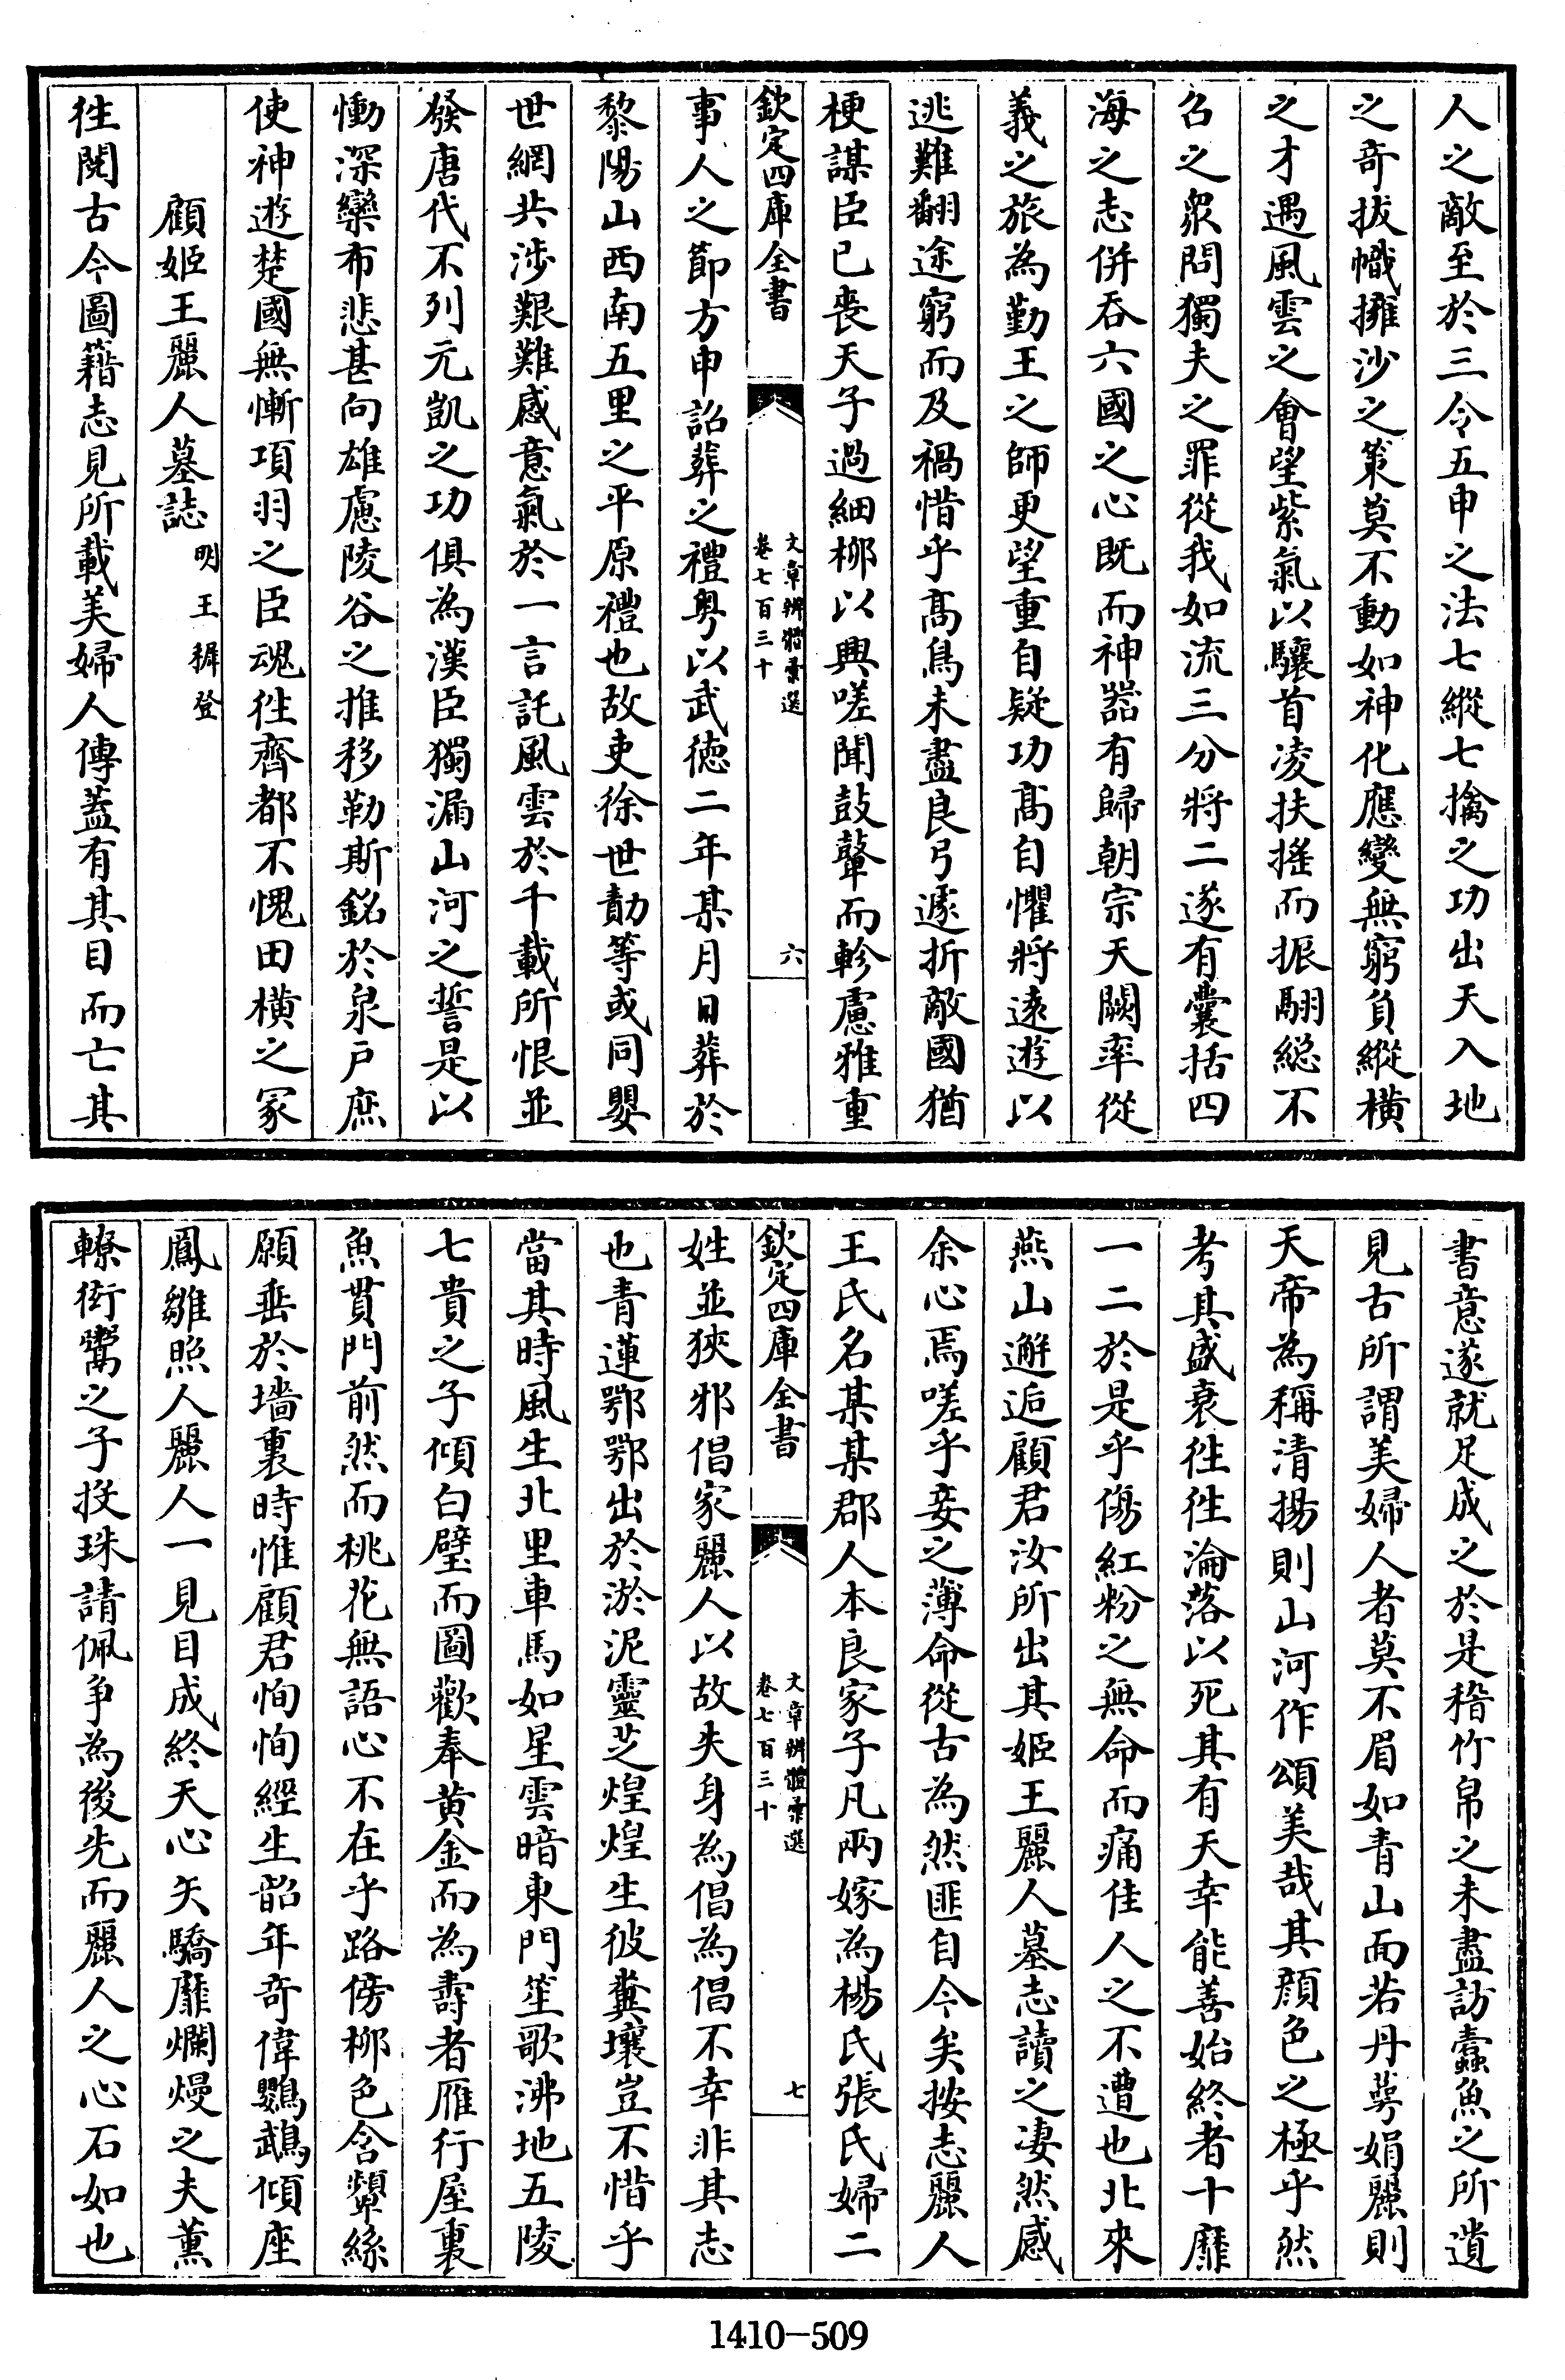 人之敵至於三令五申之法七縱七擒之功出天入地
之奇拔幟擁沙之策莫不動如神化應變無窮負縱橫
之才遇風雲之會望紫氣以驤首凌扶搖而振翮総不
召之衆問獨夫之罪從我如流三分將二遂有囊括四
海之志併吞六國之心既而神器有歸朝宗天闕率從
義之旅為勤王之師更望重自疑功髙自懼將遠遊以
逃難翻途窮而及禍惜乎髙鳥未盡良弓遽折敵國猶
梗謀臣已喪天子過細柳以興嗟聞鼓鼙而軫慮雅重
欽定四庫全書
文章辨體彚選
卷七百三十
六
事人之節方申詔葬之禮粵以武徳二年某月日葬於
黎陽山西南五里之平原禮也故吏徐世勣等或同嬰
世網共涉艱難感意氣於一言託風雲於千載所恨並
發唐代不列元凱之功俱為漢臣獨漏山河之誓是以
慟深欒布悲甚向雄慮陵谷之推移勒斯銘於泉戶庶
使神遊楚國無慚項羽之臣魂徃齊都不愧田橫之冢
顧姬王麗人墓誌 明王穉登
徃閱古今圖籍志見所載美婦人傳蓋有其目而亡其
書意遂就足成之於是稽竹帛之未盡訪蠹魚之所遺
見古所謂美婦人者莫不眉如青山而若丹萼娟麗則
天帝為稱清揚則山河作頌美哉其顔色之極乎然
考其盛衰徃徃淪落以死其有天幸能善始終者十靡
一二於是乎傷紅粉之無命而痛佳人之不遭也北來
燕山邂逅顧君汝所出其姬王麗人墓志讀之凄然感
余心焉嗟乎妾之薄命從古為然匪自今矣按志麗人
王氏名某某郡人本良家子凡兩嫁為楊氏張氏婦二
欽定四庫全書
文章辨體彚選
卷七百三十
七
姓並狹邪倡家麗人以故失身為倡為倡不幸非其志
也青蓮鄂鄂出於淤泥靈芝煌煌生彼糞壤豈不惜乎
當其時風生北里車馬如星雲暗東門笙歌沸地五陵
七貴之子傾白璧而圖歡奉黄金而為壽者雁行屋裏
魚貫門前然而桃花無語心不在乎路傍柳色含顰絲
願垂於墻裏時惟顧君恂恂經生韶年奇偉鸚鵡傾座
鳳雛照人麗人一見目成終天心矢驕靡爛熳之夫薰
轑衒鬻之子投珠請佩争為後先而麗人之心石如也
1410-509